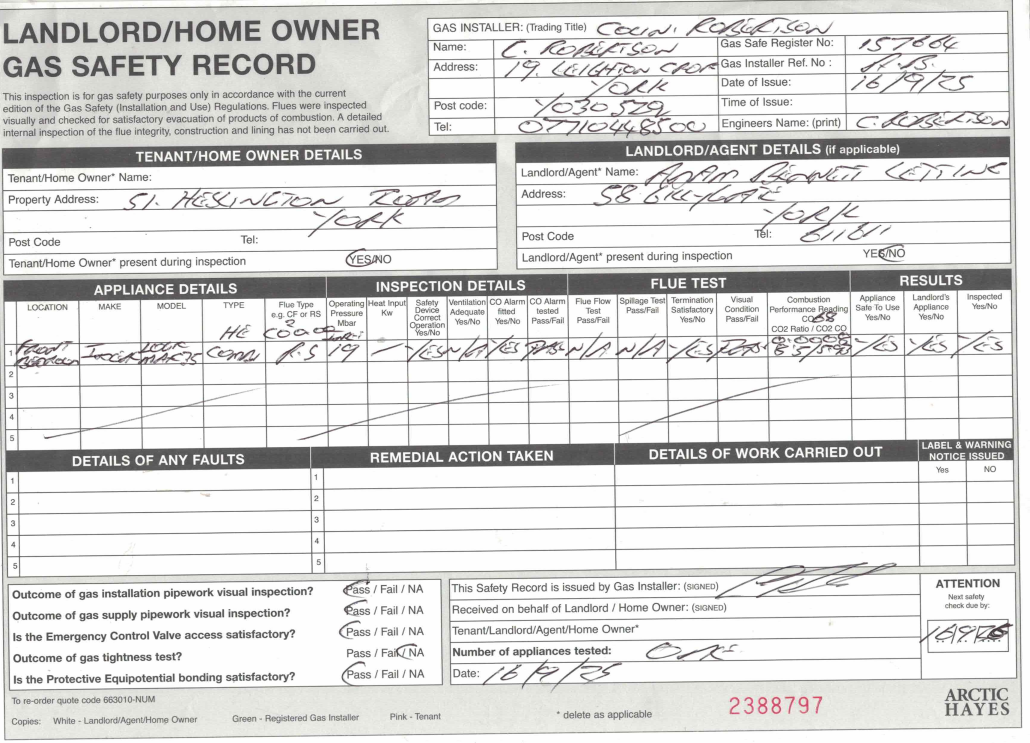 LANDLORD/HOME OWNER
GAS SAFETY RECORD
This inspection is for gas safety purposes only in accordance with the current
edition of the Gas Safety (Installation and Use) Regulations. Flues were inspected
visually and checked for satisfactory evacuation of products of combustion. A detailed
internal inspection of the flue integrity, construction and lining has not been carried out.
GAS INSTALLER: (Trading Title) COLIN. ROBERTSON
Name: C. ROBERTSON Gas Safe Register No: 157664
Address: 19. LEIGHTON CROF Gas Installer Ref. No :
YORK Date of Issue: 16/9/25
Post code: YO30 5ZQ Time of Issue:
Tel: 07710448500 Engineers Name: (print) C. ROBERTSON
TENANT/HOME OWNER DETAILS
Tenant/Home Owner* Name:
Property Address: 51. HESLINGTON ROAD
YORK
Post Code Tel:
Tenant/Home Owner* present during inspection YES/NO
LANDLORD/AGENT DETAILS (if applicable)
Landlord/Agent* Name: ADAM BENNETT LETTING
Address: 58 GILLYGATE
YORK
Post Code Tel: 611611
Landlord/Agent* present during inspection YES/NO
APPLIANCE DETAILS INSPECTION DETAILS FLUE TEST RESULTS
LOCATION MAKE MODEL TYPE Flue Type e.g. CF or RS Operating Pressure Mbar Heat Input Kw Safety Device Correct Operation Yes/No Ventilation Adequate Yes/No CO Alarm fitted Yes/No CO Alarm tested Pass/Fail Flue Flow Test Pass/Fail Spillage Test Pass/Fail Termination Satisfactory Yes/No Visual Condition Pass/Fail Combustion Performance Reading CO2 Ratio / CO2 CO Appliance Safe To Use Yes/No Landlord's Appliance Yes/No Inspected Yes/No
HE
1 FRONT BEDROOM LOGIC COMBI R.S 19 – YES N/A YES PASS N/A N/A YES PASS 0.0008 YES YES YES
2
3
4
5
DETAILS OF ANY FAULTS REMEDIAL ACTION TAKEN DETAILS OF WORK CARRIED OUT LABEL & WARNING NOTICE ISSUED
Yes NO
1 1
2 2
3 3
4 4
5 5
Outcome of gas installation pipework visual inspection? Pass / Fail / NA
Outcome of gas supply pipework visual inspection? Pass / Fail / NA
Is the Emergency Control Valve access satisfactory? Pass / Fail / NA
Outcome of gas tightness test? Pass / Fail / NA
Is the Protective Equipotential bonding satisfactory? Pass / Fail / NA
This Safety Record is issued by Gas Installer: (SIGNED)
Received on behalf of Landlord / Home Owner: (SIGNED)
Tenant/Landlord/Agent/Home Owner*
Number of appliances tested: ONE
Date: 16/9/25
ATTENTION
Next safety
check due by:
16926
To re-order quote code 663010-NUM
Copies: White - Landlord/Agent/Home Owner Green - Registered Gas Installer Pink - Tenant
* delete as applicable
2388797
ARCTIC
HAYES